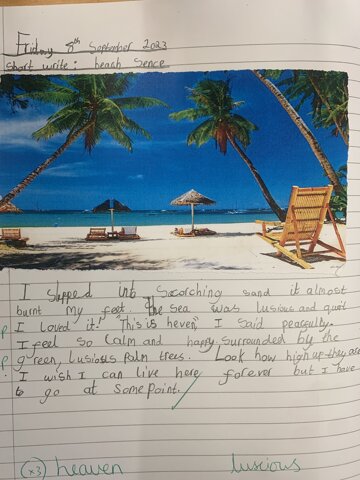 Friday 8th September 2023
Short write: beach Sence
I stepped into Scorching sand it almost
burnt my feet. The sea was lusious and quit
P I loved it! "This is heven," I said peacfully.
I feel so calm and happy surrounded by the
P green, lusioss Palm trees. Look how high up they are
I wish I can live here forever but I have
to go at some point.
(x3) heaven luscious